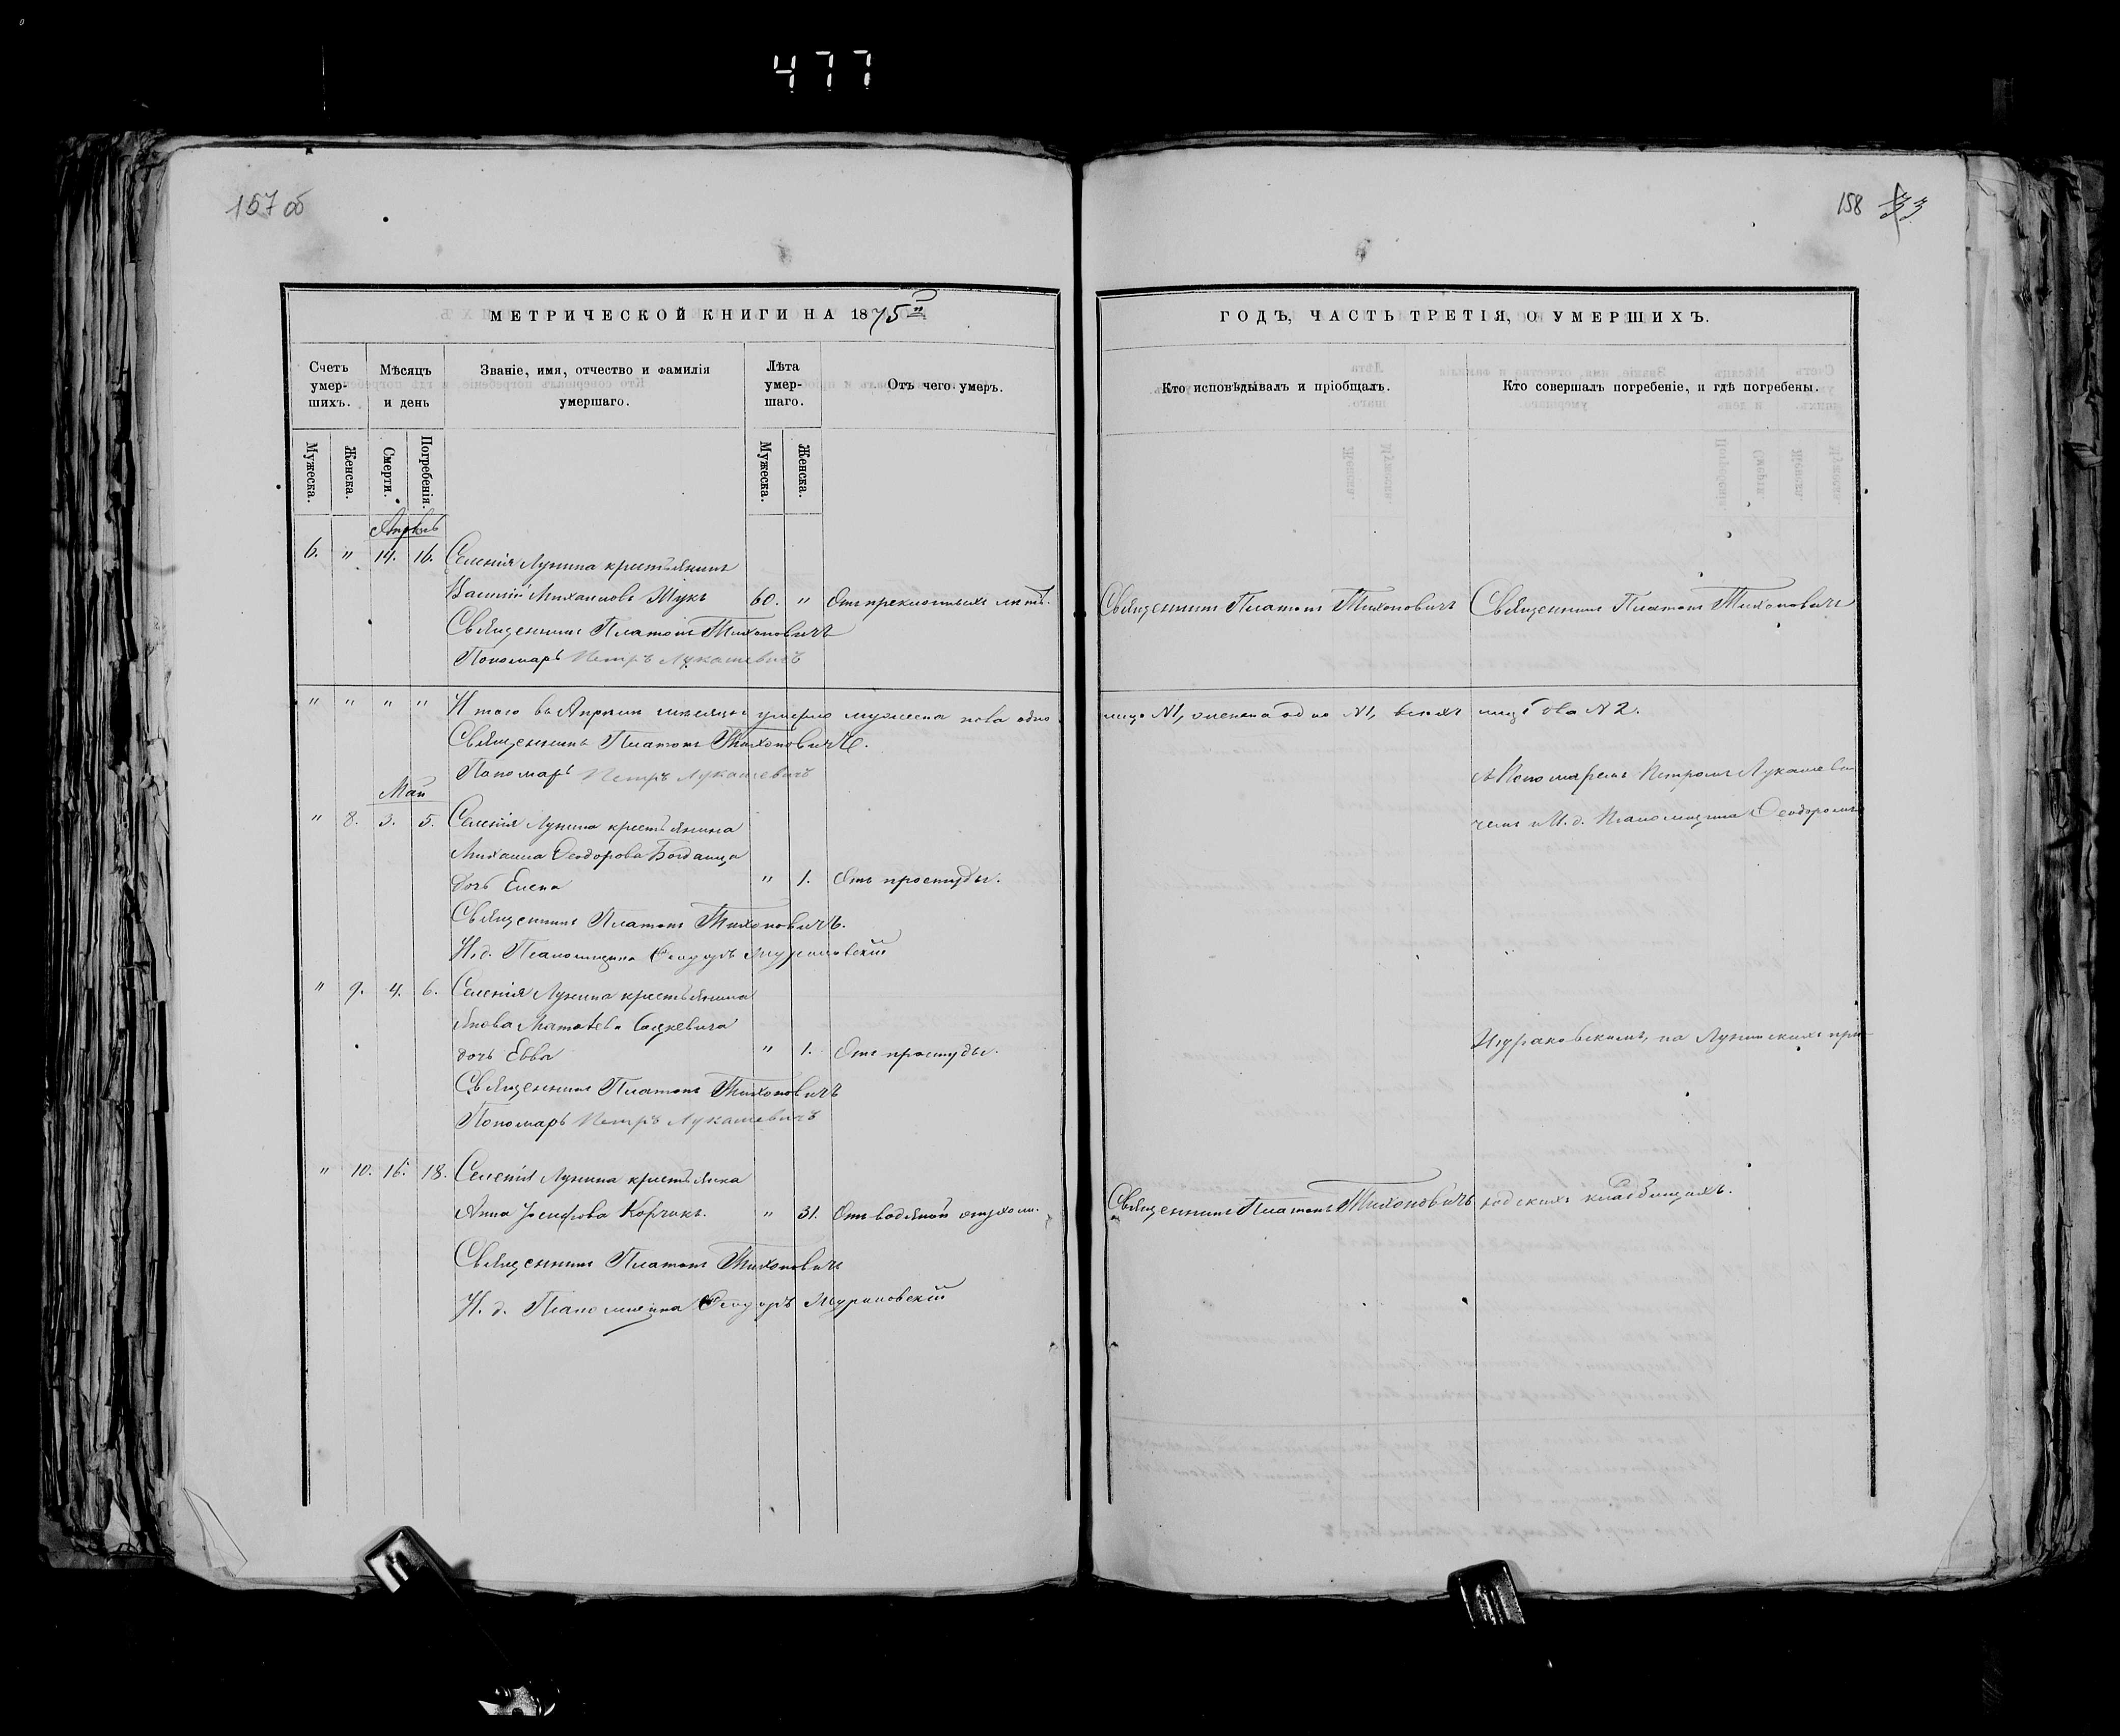 477
157 об
158 33
МЕТРИЧЕСКОЙ КНИГИ НА 1875й
ГОДЪ, ЧАСТЬ ТРЕТІЯ, О УМЕРШИХЪ.
Счетъ умер- шихъ.
Мѣсяцъ и день
Званіе, имя, отчество и фамилія умершаго.
Лѣта умер- шаго.
Отъ чего умеръ.
Кто исповѣдывалъ и пріобщалъ.
Кто совершалъ погребеніе, и гдѣ погребены.
Мужеска. Женска. Смерти. Погребенія. Мужеска. Женска.
Апрѣль
6. " 14. 16. Селенія Лунина крестьянинъ
Василій Михаиловъ Жукъ 60. " Отъ преклонныхъ лѣтъ. Священникъ Платонъ Тихоновичъ Священникъ Платонъ Тихоновичъ
Священникъ Платонъ Тихоновичъ
Пономарь Петръ Лукашевичъ
" " " " Итого въ Апрѣлѣ мѣсяцѣ умерло мужеска пола одно лице N1, женска одно N1, всѣхъ лицъ два N2.
Священникъ Платонъ Тихоновичъ.
Пономарь Петръ Лукашевичъ
съ Пономаремъ Петромъ Лукашеви-
Май
" 8. 3. 5. Селенія Лунина крестьянина
чемъ и И. д. Псаломщика Ѳеодоромъ
Михаила Ѳеодорова Богданца
дочь Елена " 1. Отъ простуды.
Священникъ Платонъ Тихоновичъ.
И. д. Псаломщика Ѳеодоръ
" 9. 4. 6. Селенія Лунина крестьянина
Якова Матѳева
дочь Евва " 1. Отъ простуды.
на Лунинскихъ при-
Священникъ Платонъ Тихоновичъ
Пономарь Петръ Лукашевичъ
" 10. 16. 18. Селенія Лунина крестьянка
Анна Іосифова Корчикъ. " 31. Отъ водяной опухоли. Священникъ Платонъ Тихоновичъ ходскихъ кладбищахъ.
Священникъ Платонъ Тихоновичъ
И. д. Псаломщика Ѳеодоръ